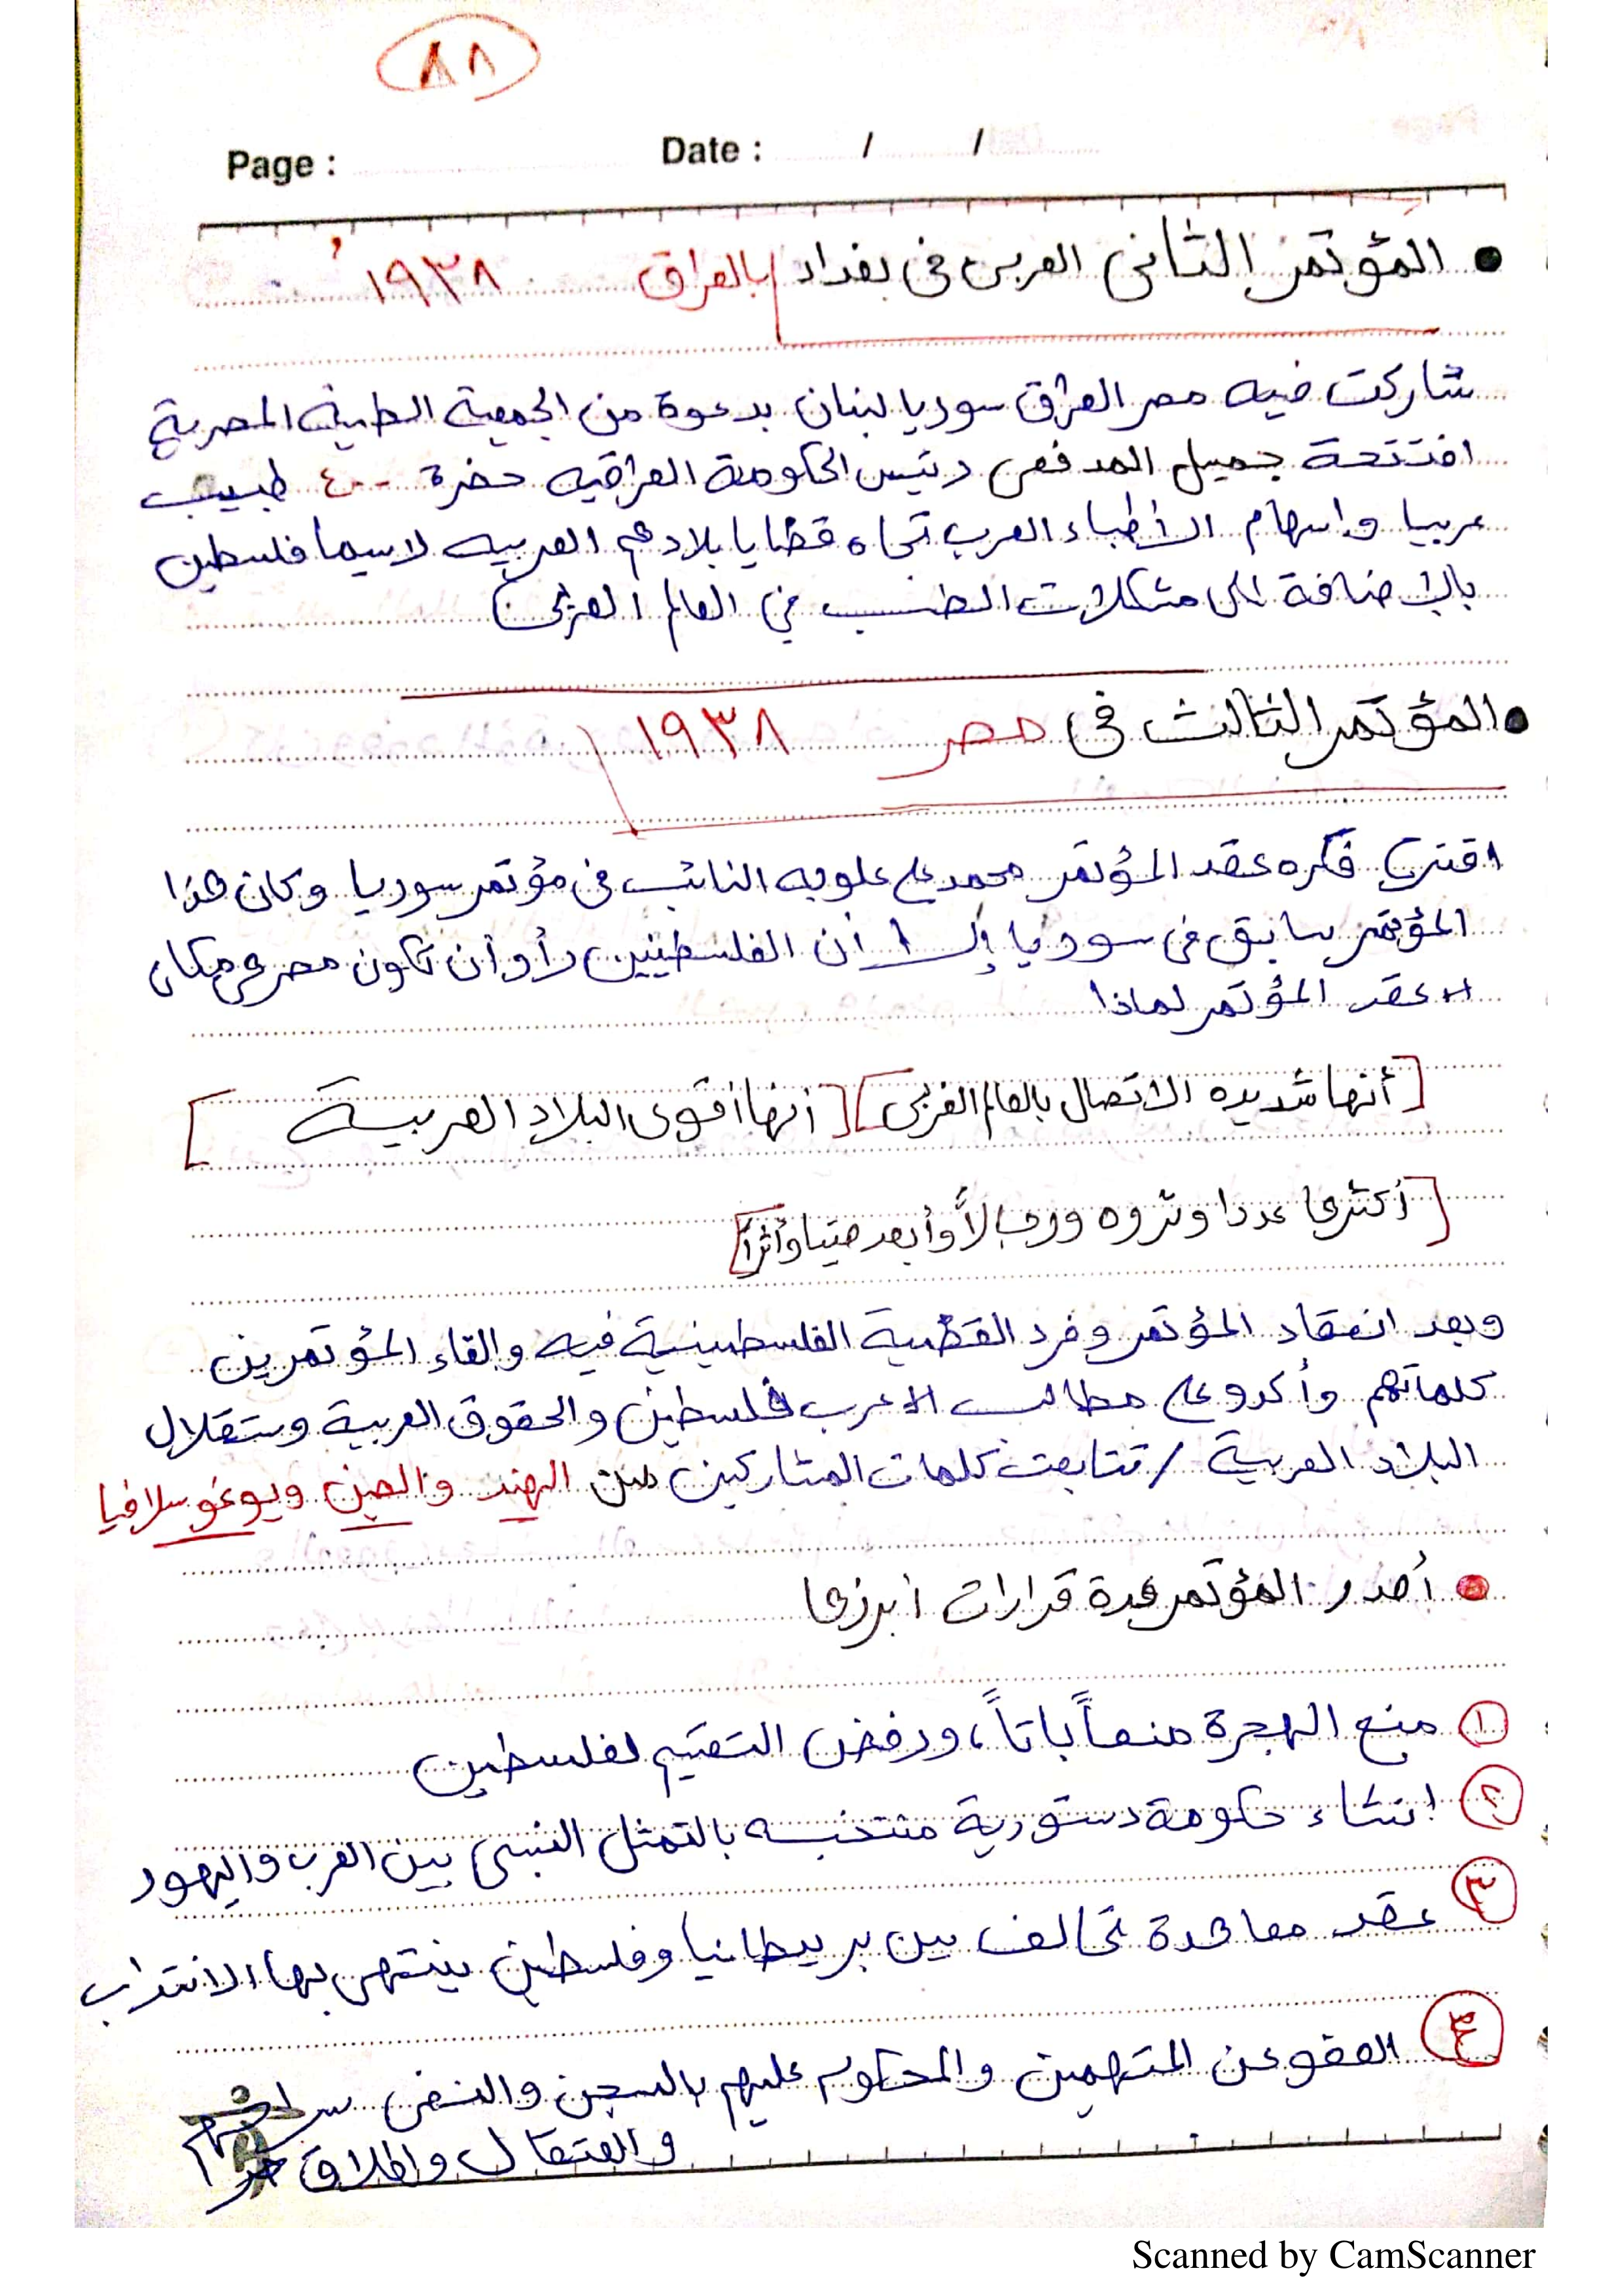 ٨٨
Page : Date : / /
● المؤتمر الثانى العربى فى بغداد بالعراق ١٩٣٨
شاركت فيه مصر العراق سوريا لبنان بدعوة من الجمعية الطبية المصرية
افتتحة جميل المدفعى رئيس الحكومة العراقيه حضرة ٤٠٠ طبيب
عربيا واسهام الأطباء العرب تجاه قضايا بلادهم العربيه لاسيما فلسطين
بالإضافة الى مشكلات الطب في العالم العربى
● المؤتمر الثالث فى مصر ١٩٣٨
اقترح فكره عقد المؤتمر محمد على علوبه النائب فى مؤتمر سوريا وكان هذا
المؤتمر سابق فى سوريا إلا أن الفلسطينين رأو أن تكون مصر هى مكان
عقد المؤتمر لماذا
[أنها شديده الاتصال بالعالم الغربى] [أنها أقوى البلاد العربية]
[أكثرها عددا وثروه ورجالاً وأبعد صيتا وأثراً]
وبعد انعقاد المؤتمر وفرد القضية الفلسطينية فيه والقاء المؤتمرين
كلماتهم وأكدو على مطالب العرب فلسطين والحقوق العربية وستقلال
البلاد العربية / تتابعت كلمات المشاركين من الهند والصين ويوغوسلافيا
● أصدر المؤتمر عدة قرارات أبرزها
١ منع الهجرة منعاً باتاً، ورفض التقسيم لفلسطين
٢ انشاء حكومة دستورية منتخبه بالتمثل النسبى بين العرب واليهود
٣ عقد معاهدة تحالف بين بريطانيا وفلسطين ينتهى بها الانتداب
٤ العفو عن المتهمين والمحكوم عليهم بالسجن والنفى
والعتقال واطلاق
Scanned by CamScanner